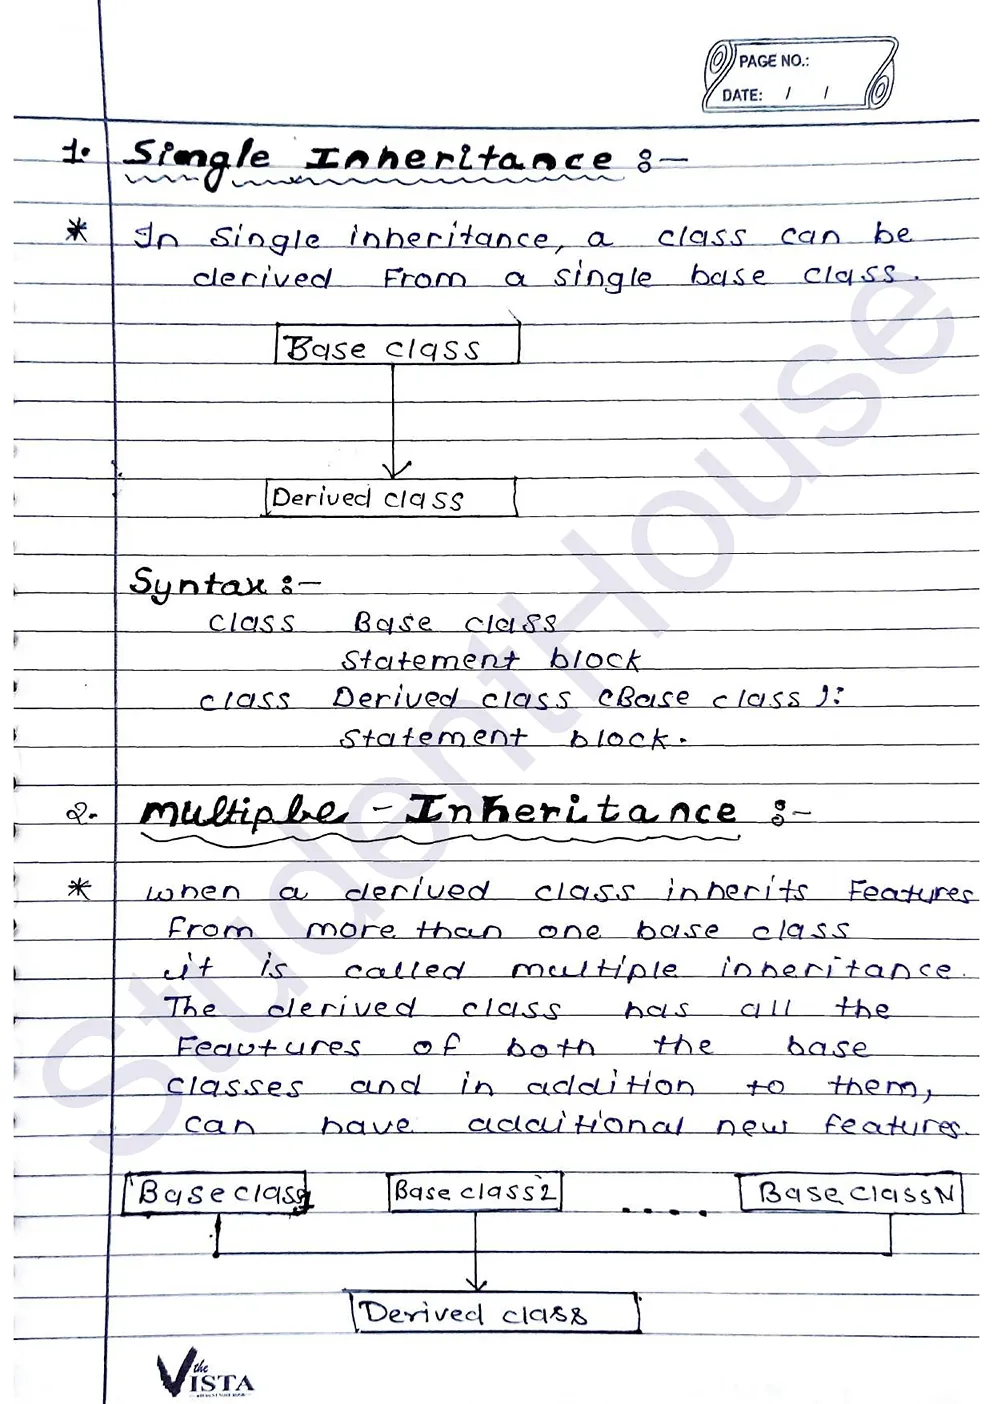 PAGE NO.:
DATE: / /
1. Single Inheritance :-
* In Single inheritance, a class can be
derived From a single base class.
Base class
Derived class
Syntax :-
class Base class
Statement block
class Derived class (Base class):
Statement block.
2. Multiple - Inheritance :-
* When a derived class inherits Features
From more than one base class
it is called multiple inheritance.
The derived class has all the
Feautures of both the base
classes and in addition to them,
can have additional new features.
Base class1 Base class2 .... Base class N
Derived class
the VISTA
StudentHouse